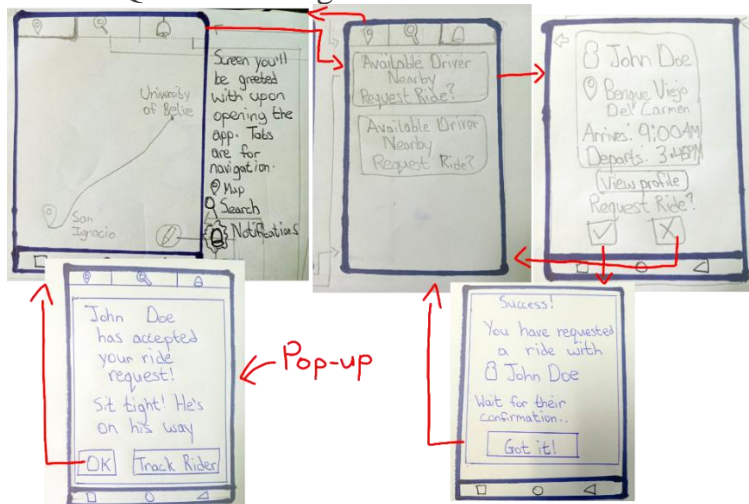 University
of Belize
San
Ignacio
Screen you'll
be greeted
with upon
opening the
app. Tabs
are for
navigation.
Map
Search
Notifications
Available Driver
Nearby
Request Ride?
Available Driver
Nearby
Request Ride?
John Doe
Benque Viejo
Del Carmen
Arrives: 9:00AM
Departs: 3:45PM
View profile
Request Ride?
John Doe
has accepted
your ride
request!
Sit tight! He's
on his way
OK
Track Rider
Pop-up
Success!
You have requested
a ride with
John Doe
Wait for their
confirmation..
Got it!